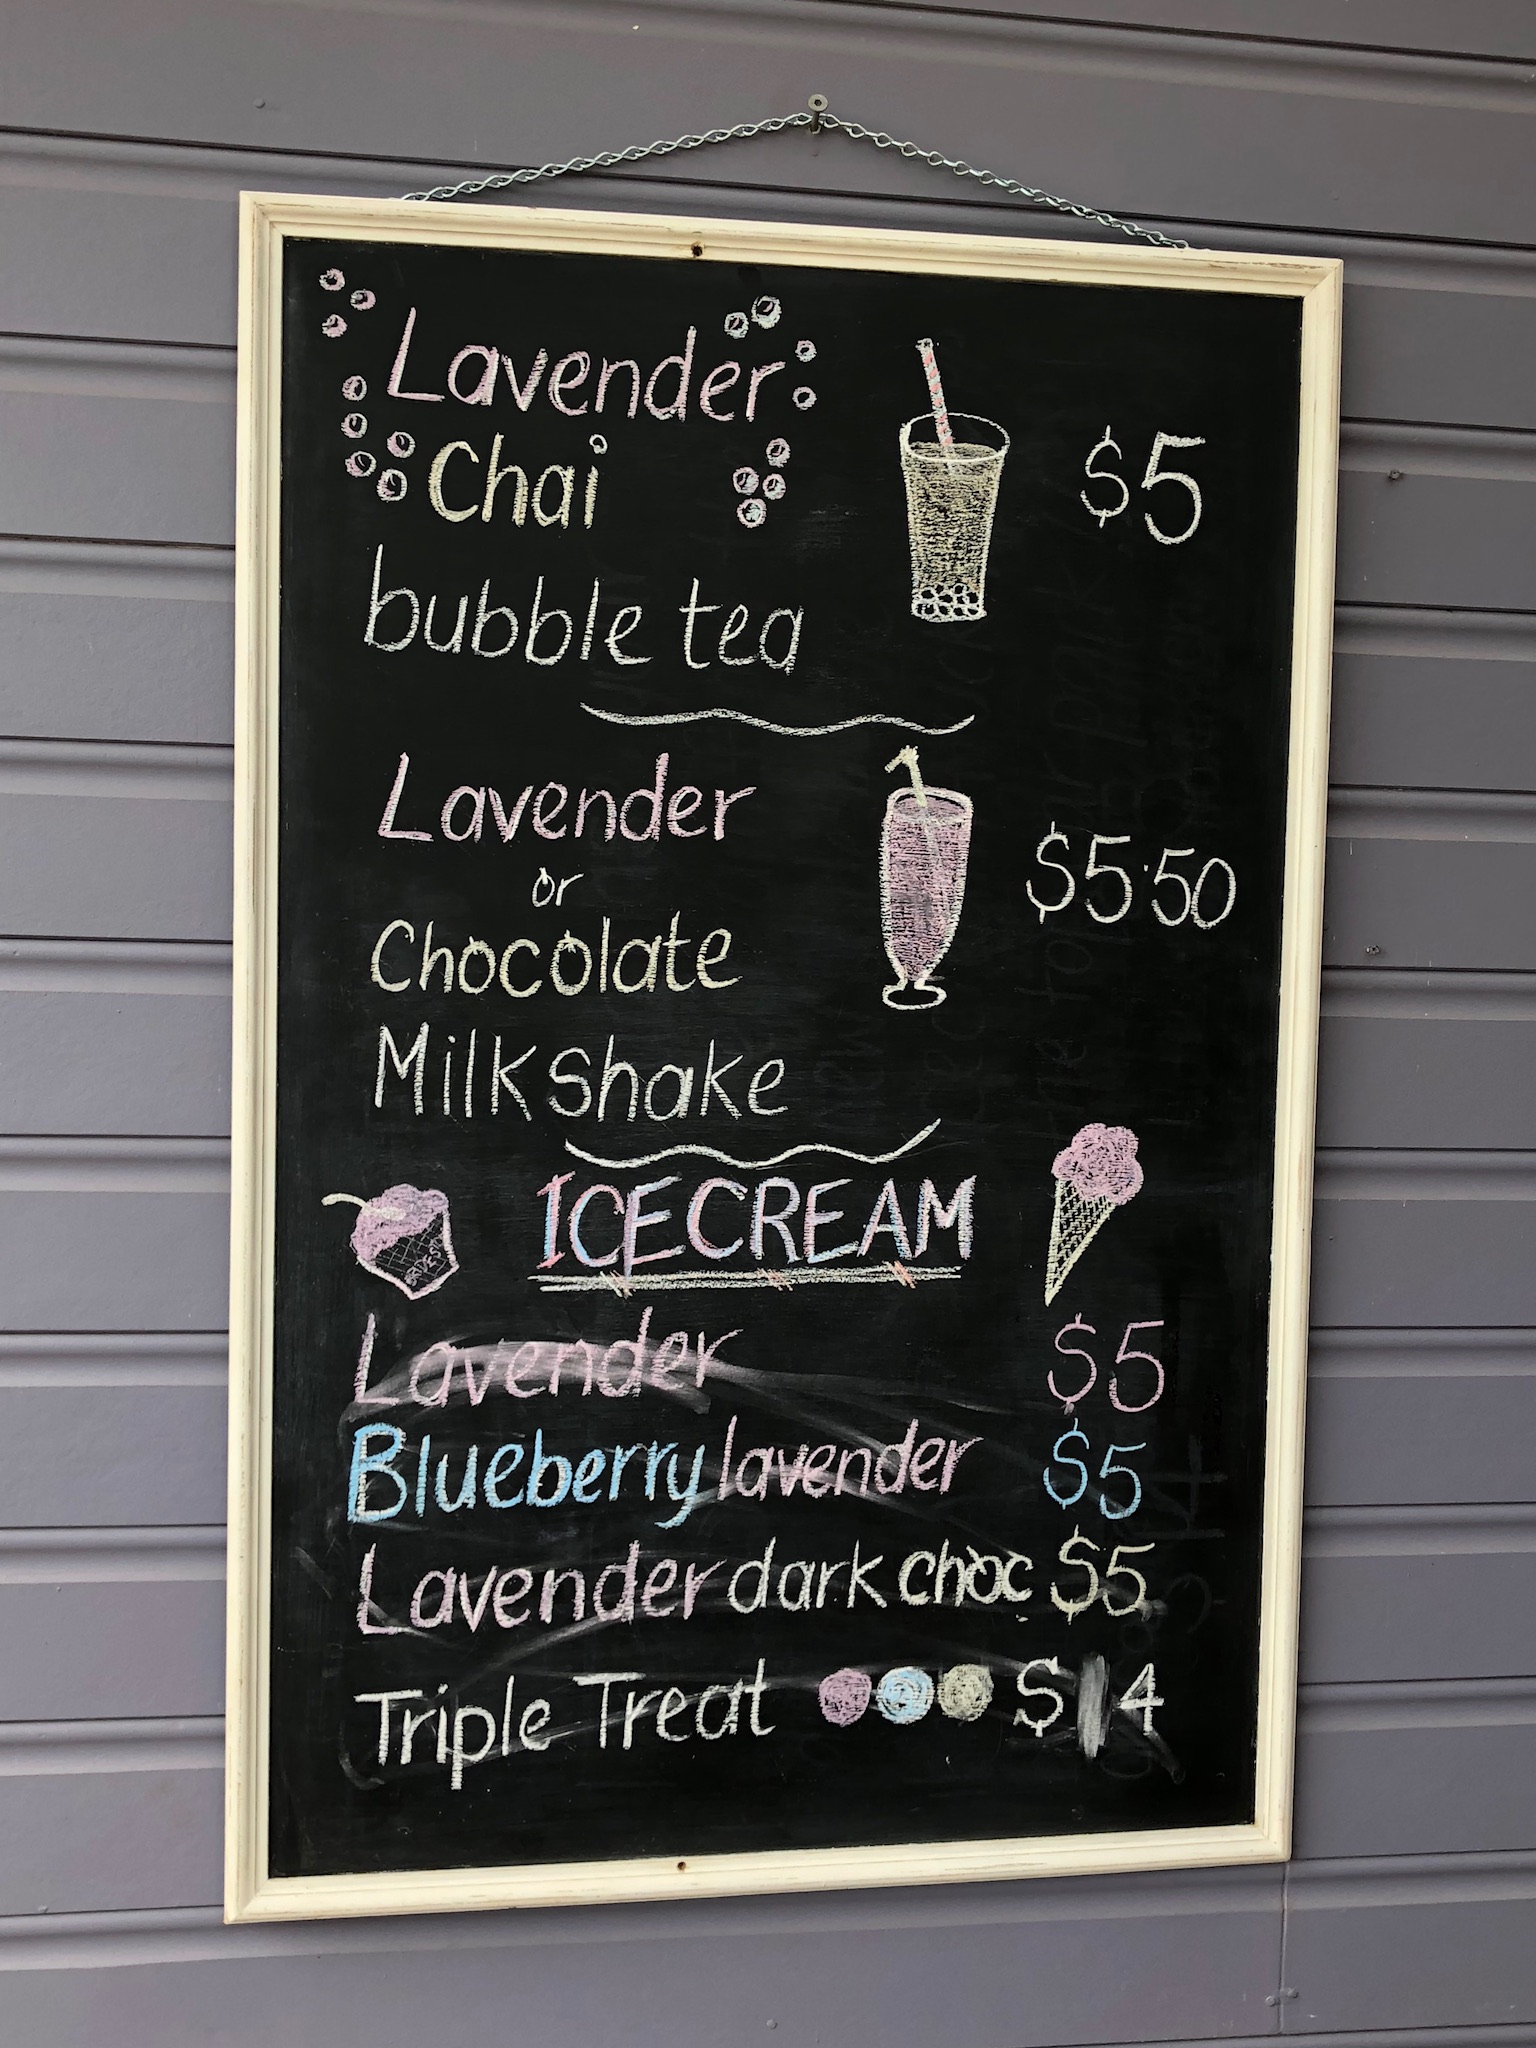 Lavender
Chai
bubble tea
$5
Lavender
or
Chocolate
Milkshake
$5.50
ICECREAM
Lavender $5
Blueberry lavender $5
Lavender dark choc $5
Triple Treat $14